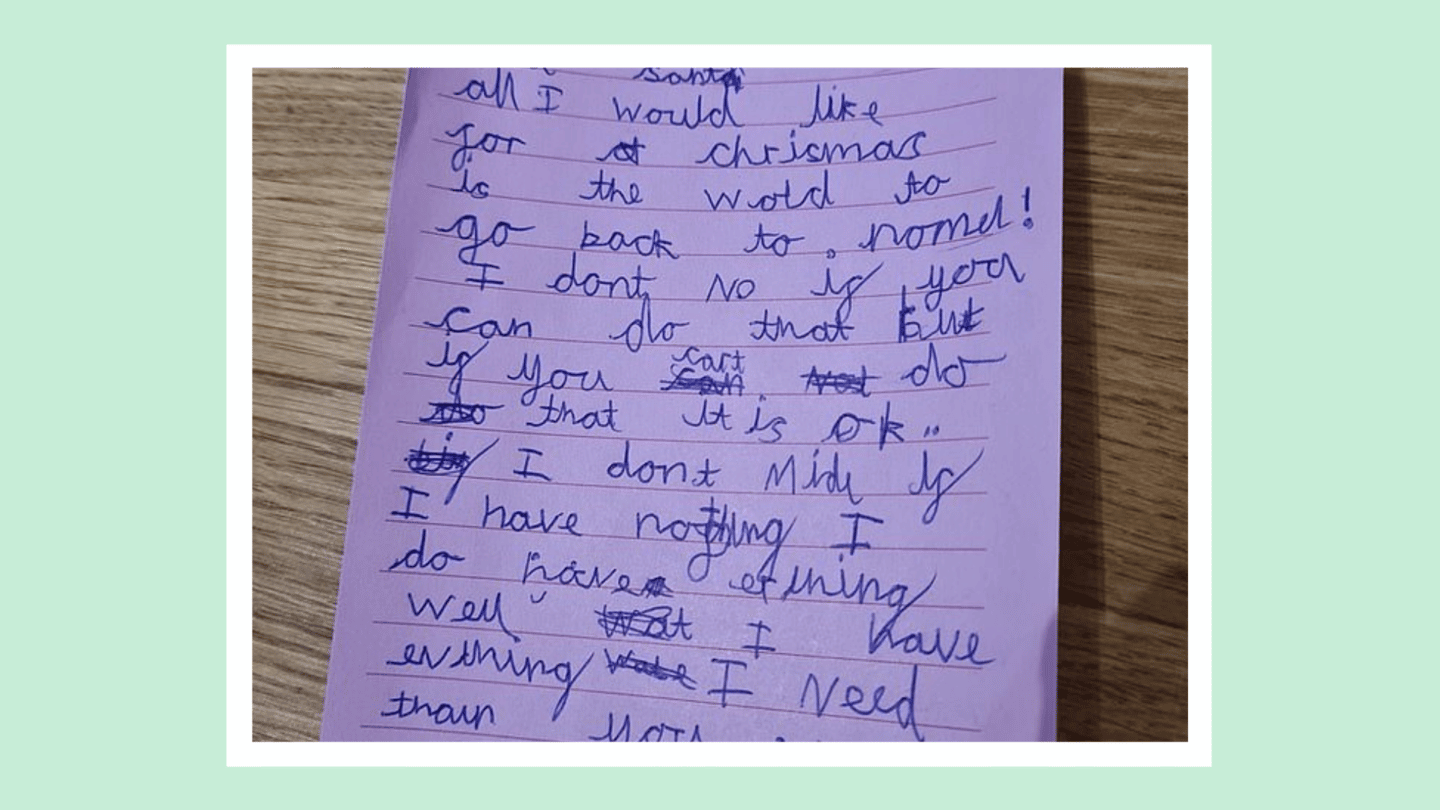 santa
all I would like
for chrismas
is the wold to
go back to nomel!
I dont No if you
can do that but
if you cart do
that it is ok..
I dont Mide if
I have nothing I
do have erthing
well I have
evthing I Need
than you